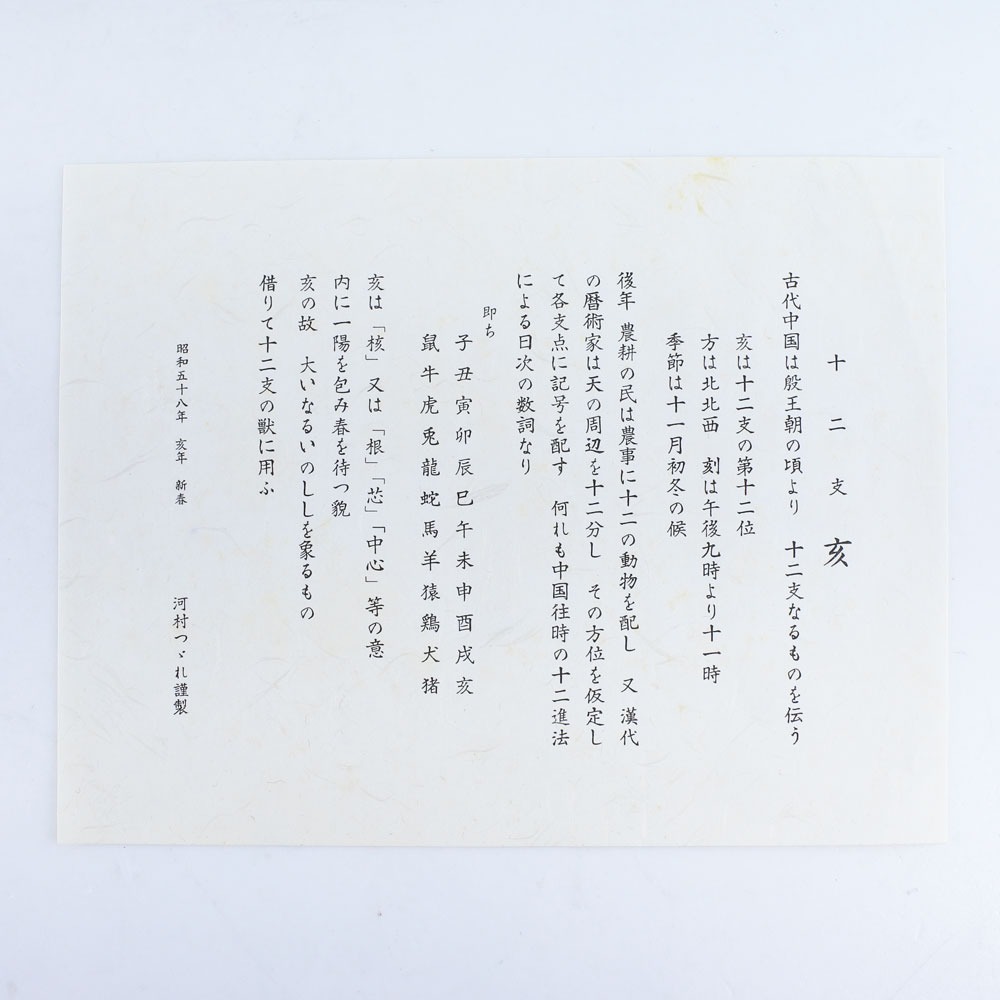 十二支 亥
古代中国は殷王朝の頃より 十二支なるものを伝う
亥は十二支の第十二位
方は北北西 刻は午後九時より十一時
季節は十一月初冬の候
後年 農耕の民は農事に十二の動物を配し 又 漢代
の暦術家は天の周辺を十二分し その方位を仮定し
て各支点に記号を配す 何れも中国往時の十二進法
による日次の数詞なり
即ち
子丑寅卯辰巳午未申酉戌亥
鼠牛虎兎龍蛇馬羊猿鶏犬猪
亥は「核」又は「根」「芯」「中心」等の意
内に一陽を包み春を待つ貌
亥の故 大いなるいのししを象るもの
借りて十二支の獣に用ふ
昭和五十八年 亥年 新春
河村つゞれ謹製